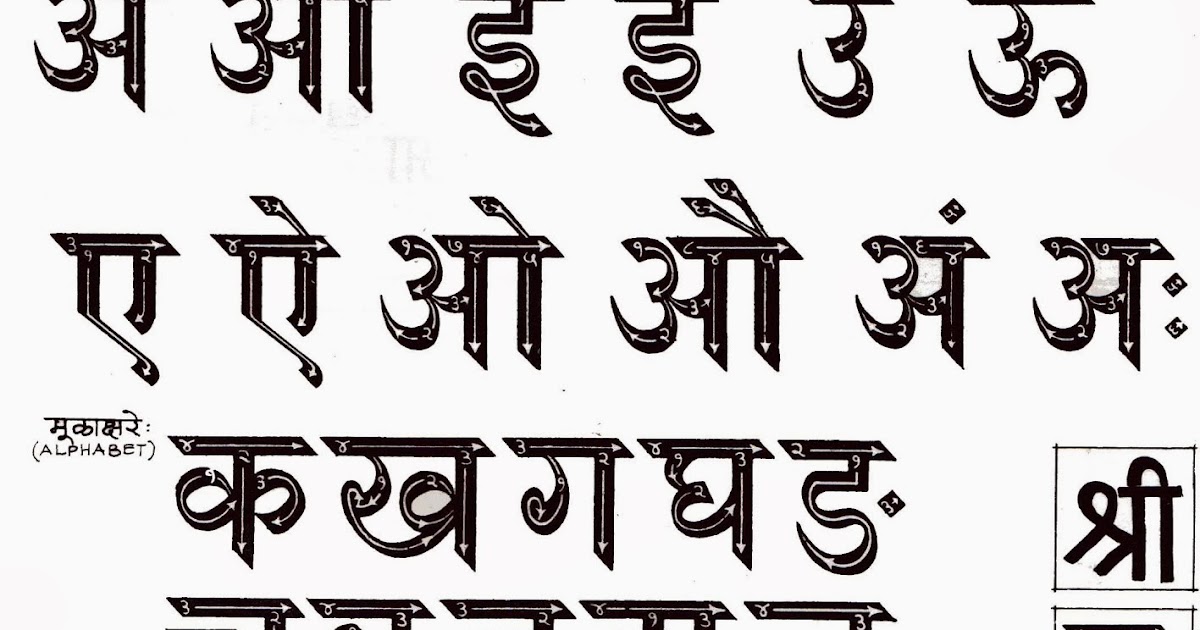 अ आ इ इ उ ऊ
ए ऐ ओ औ अं अः
मूळाक्षरे:
(ALPHABET)
क ख ग घ ङ
श्री